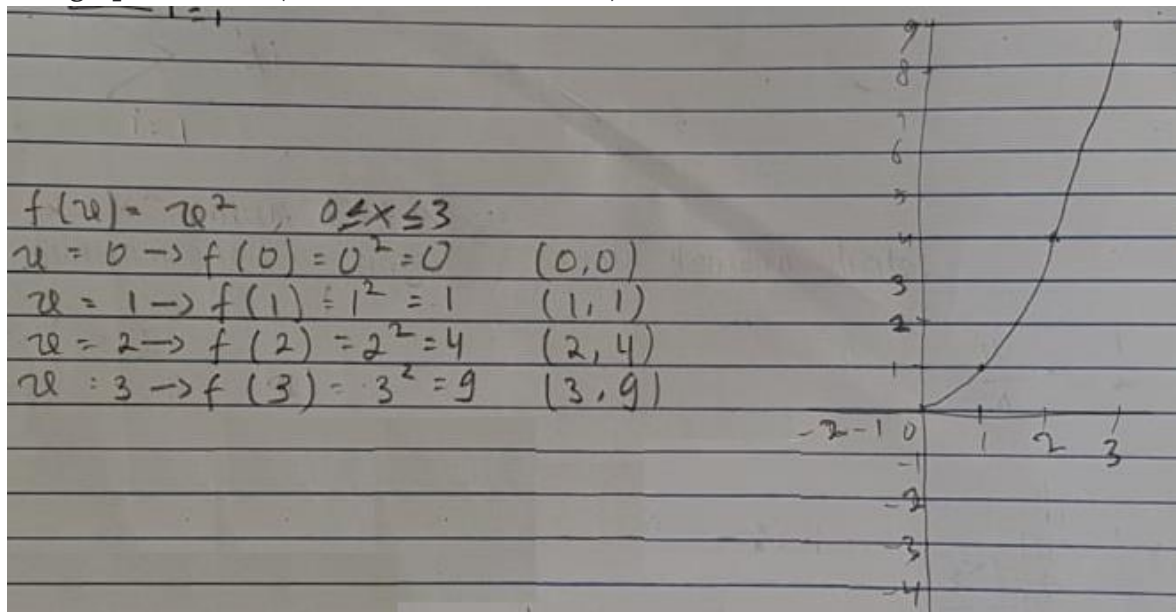 f(x) = x², 0 ≤ x ≤ 3
x = 0 -> f(0) = 0² = 0 (0,0)
x = 1 -> f(1) = 1² = 1 (1,1)
x = 2 -> f(2) = 2² = 4 (2,4)
x = 3 -> f(3) = 3² = 9 (3,9)
9
8
7
6
5
4
3
2
1
-2 -1 0 1 2 3
-1
-2
-3
-4